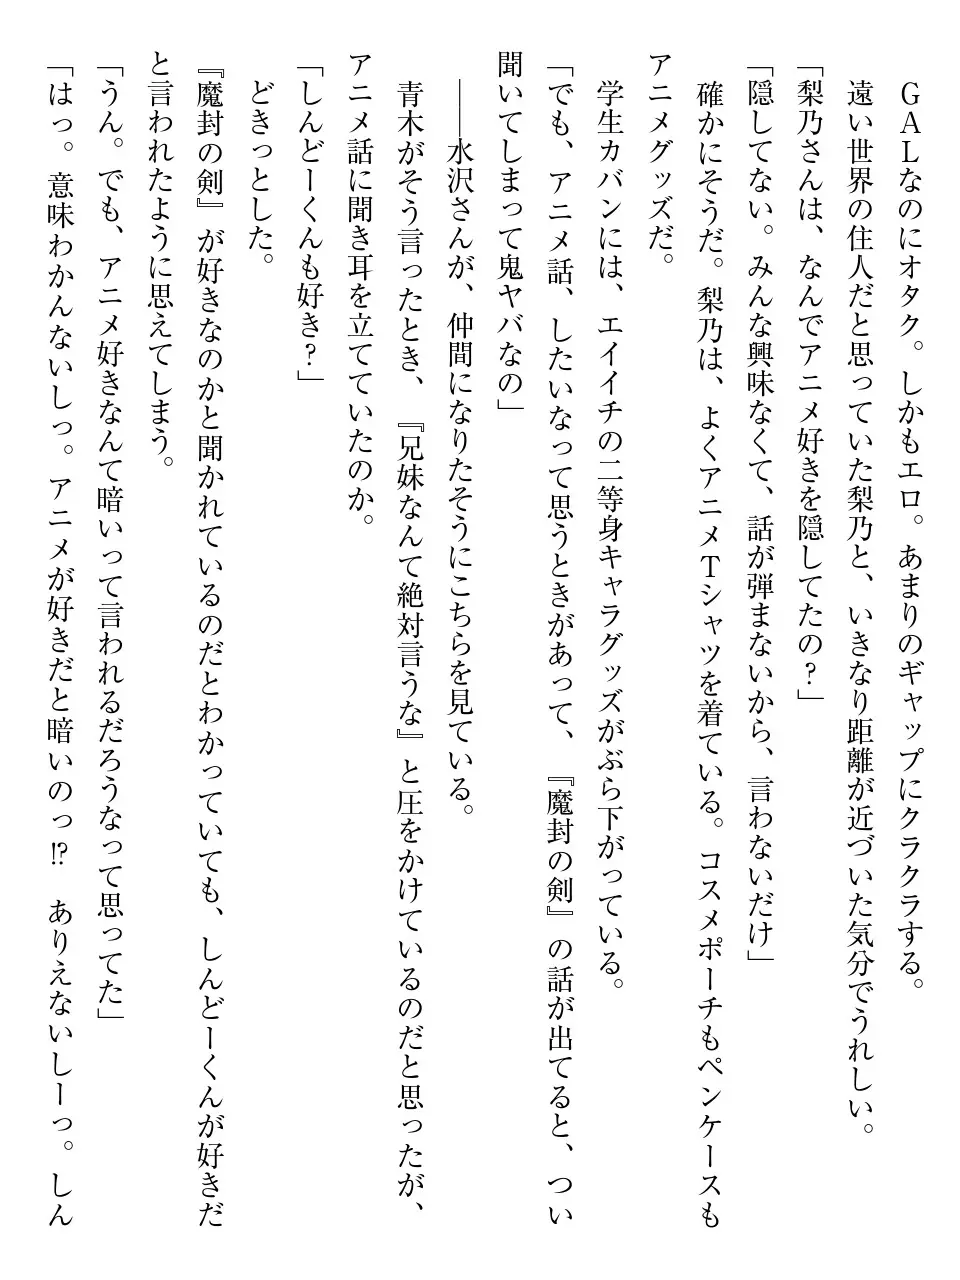 ＧＡＬなのにオタク。しかもエロ。あまりのギャップにクラクラする。
　遠い世界の住人だと思っていた梨乃と、いきなり距離が近づいた気分でうれしい。
「梨乃さんは、なんでアニメ好きを隠してたの？」
「隠してない。みんな興味なくて、話が弾まないから、言わないだけ」
　確かにそうだ。梨乃は、よくアニメＴシャツを着ている。コスメポーチもペンケースも
アニメグッズだ。
　学生カバンには、エイイチの二等身キャラグッズがぶら下がっている。
「でも、アニメ話、したいなって思うときがあって、『魔封の剣』の話が出てると、つい
聞いてしまって鬼ヤバなの」
　――水沢さんが、仲間になりたそうにこちらを見ている。
　青木がそう言ったとき、『兄妹なんて絶対言うな』と圧をかけているのだと思ったが、
アニメ話に聞き耳を立てていたのか。
「しんどーくんも好き？」
　どきっとした。
『魔封の剣』が好きなのかと聞かれているのだとわかっていても、しんどーくんが好きだ
と言われたように思えてしまう。
「うん。でも、アニメ好きなんて暗いって言われるだろうなって思ってた」
「はっ。意味わかんないしっ。アニメが好きだと暗いのっ⁉　ありえないしーっ。しん